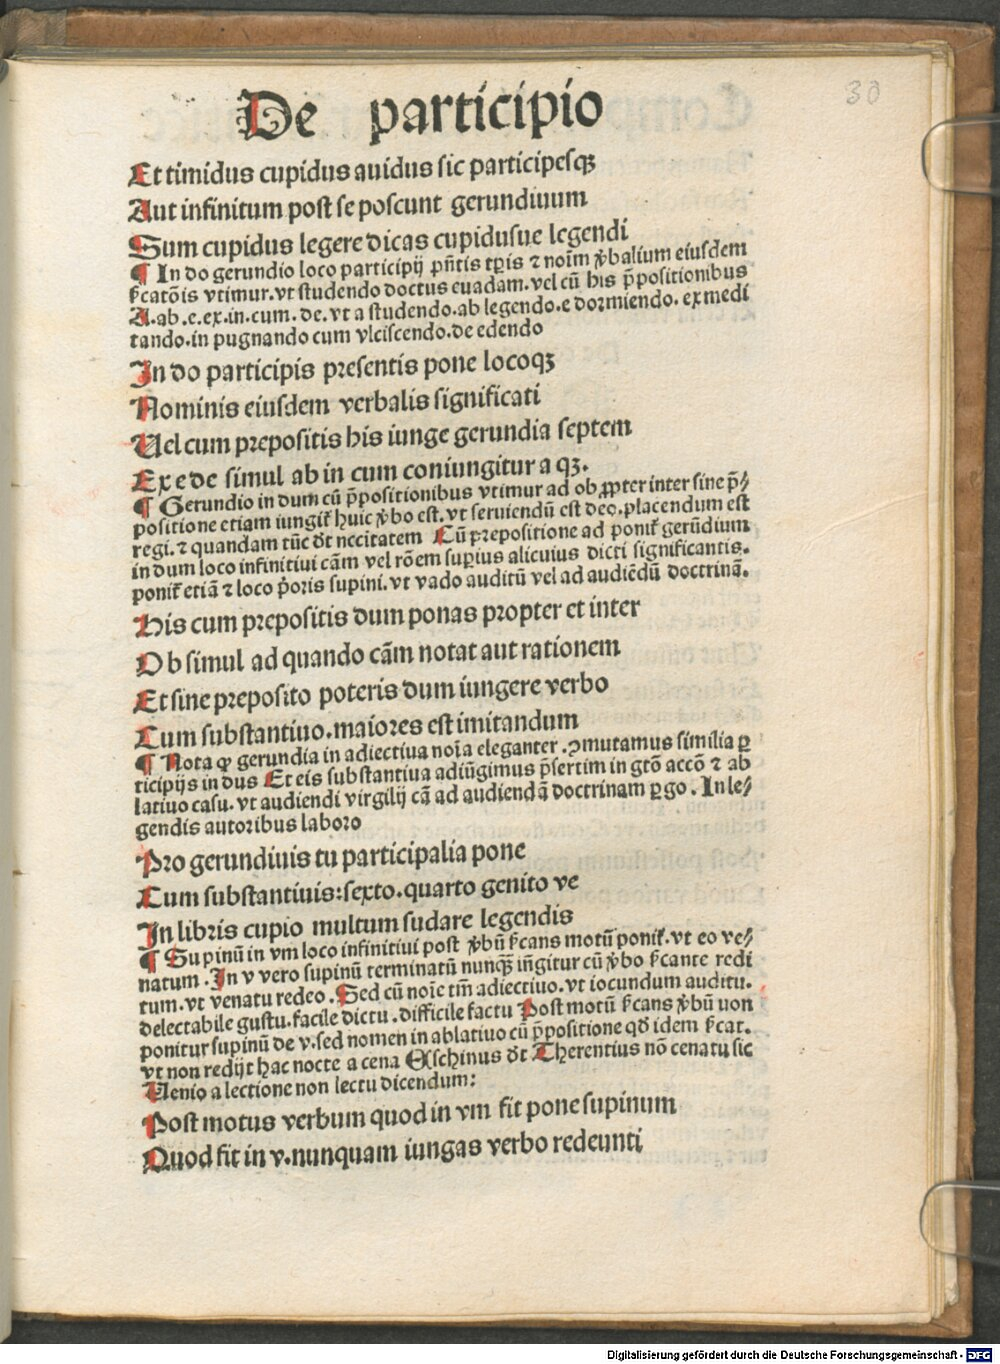 30
De participio
Et timidus cupidus auidus sic participesqꝫ
Aut infinitum post se poscunt gerundiuum
Sum cupidus legere dicas cupidusue legendi
¶ In do gerundio loco participij p̃ntis tꝑis ⁊ noim̃ ꝟbalium eiusdem
ſ̃catõis vtimur. vt studendo doctus euadam. vel cũ his p̃positionibus
A. ab. e. ex. in. cum. de. vt a studendo. ab legendo. e dormiendo. ex medi
tando. in pugnando cum vlciscendo. de edendo
In do participis presentis pone locoqꝫ
Nominis eiusdem verbalis significati
Uel cum prepositis his iunge gerundia septem
Ex e de simul ab in cum coniungitur a qꝫ.
¶ Gerundio in dum cũ p̃positionibus vtimur ad ob ꝓpter inter sine p̃⸗
positione etiam iungit̃ huic ꝟbo est. vt seruiendũ est deo. placendum est
regi. ⁊ quandam tũc d̃t nccitatem Cũ prepositione ad ponit̃ gerũdium
in dum loco infinitiui cãm vel rõem suꝑius alicuius dicti significantis.
ponit̃ etiã ⁊ loco p̃oris supini. vt vado auditũ vel ad audiẽdũ doctrinã.
His cum prepositis dum ponas propter et inter
Ob simul ad quando cãm notat aut rationem
Et sine preposito poteris dum iungere verbo
Cum substantiuo. maiores est imitandum
¶ Nota ꝙ gerundia in adiectiua noĩa eleganter. ꝯmutamus similia ꝑ
ticipijs in dus Et eis substantiua adiũgimus p̃sertim in gtõ accõ ⁊ ab
latiuo casu. vt audiendi virgilij cã ad audiendã doctrinam ꝑgo. In le⸗
gendis autoribus laboro
Pro gerundiuis tu participalia pone
Cum substantiuis: sexto. quarto genito ve
In libris cupio multum sudare legendis
¶ Supinũ in vm loco infinitiui post ꝟbũ ſ̃cans motũ ponit̃. vt eo ve⸗
natum. In v vero supinũ terminatũ nunqꝫ̃ iũgitur cũ ꝟbo ſ̃cante redi
tum. vt venatu redeo. Sed cũ noĩe tm̃ adiectiuo. vt iocundum auditu.
delectabile gustu. facile dictu. difficile factu Post motũ ſ̃cans ꝟbũ uon
ponitur supinũ de v. sed nomen in ablatiuo cũ p̃positione qd̃ idem ſ̃cat.
vt non redijt hac nocte a cena Eschinus d̃t Therentius nõ cenatu sic
Uenio a lectione non lectu dicendum:
Post motus verbum quod in vm fit pone supinum
Quod fit in v. nunquam iungas verbo redeunti
Digitalisierung gefördert durch die Deutsche Forschungsgemeinschaft - DFG